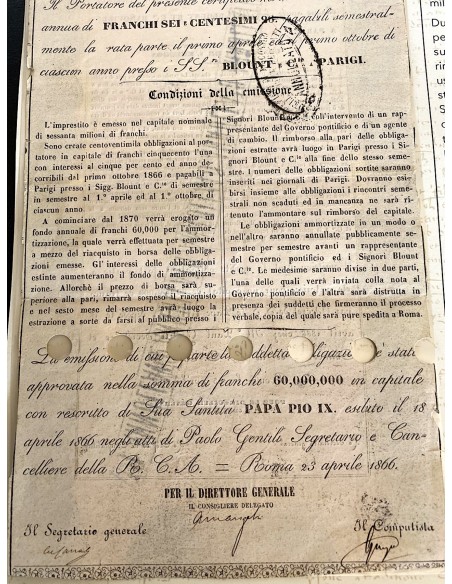 Il Portatore del presente certificato
annua di FRANCHI SEI e CENTESIMI 25. pagabili semestral-
mente la rata parte il primo aprile ed il primo ottobre di
ciascun anno presso i SS.ri BLOUNT e C.ie PARIGI.
Condizioni della emissione
L'imprestito è emesso nel capitale nominale
di sessanta milioni di franchi.
Sono create centoventimila obbligazioni al por-
tatore in capitale di franchi cinquecento l'una
con interessi al cinque per cento ed anno de-
corribili del primo ottobre 1866 e pagabili a
Parigi presso i Sigg. Blount e C.ie di semestre
in semestre al 1.º aprile ed al 1.º ottobre di
ciascun anno.
A cominciare dal 1870 verrà erogato un
fondo annuale di franchi 60,000 per l'ammor-
tizzazione, la quale verrà effettuata per semestre
a mezzo del riacquisto in borsa delle obbliga-
zioni emesse. Gl' interessi delle obbligazioni
estinte aumenteranno il fondo di ammortizza-
zione. Allorchè il prezzo di borsa sarà su-
periore alla pari, rimarrà sospeso il riacquisto
e nel sesto mese del semestre avrà luogo la
estrazione a sorte da farsi al pubblico presso i
Signori Blount e C.ie coll'intervento di un rap-
presentante del Governo pontificio e di un agente
di cambio. Il rimborso alla pari delle obbliga-
zioni estratte avrà luogo in Parigi presso i Si-
gnori Blount e C.ie alla fine dello stesso seme-
stre. I numeri delle obbligazioni sortite saranno
inseriti nei giornali di Parigi. Dovranno esi-
birsi insieme alle obbligazioni i riscontri seme-
strali non scaduti ed in mancanza ne sarà ri-
tenuto l'ammontare sul rimborso del capitale.
Le obbligazioni ammortizzate in un modo o
nell'altro saranno annullate pubblicamente seme-
stre per semestre avanti un rappresentante
del Governo pontificio ed i Signori Blount
e C.ie. Le medesime saranno divise in due parti,
l'una delle quali verrà inviata colla nota al
Governo pontificio e l'altra sarà distrutta in
presenza dei suddetti che firmeranno il processo
verbale, copia del quale sarà pure spedita a Roma.
La emissione di cui fa parte la suddetta obbligazione è stata
approvata nella somma di franchi 60,000,000 in capitale
con rescritto di Sua Santità PAPA PIO IX. esibito il 18
aprile 1866 negli atti di Paolo Gentili Segretario e Can-
celliere della R. C. A. = Roma 23 aprile 1866.
PER IL DIRETTORE GENERALE
IL CONSIGLIERE DELEGATO
Il Segretario generale
Il Computista